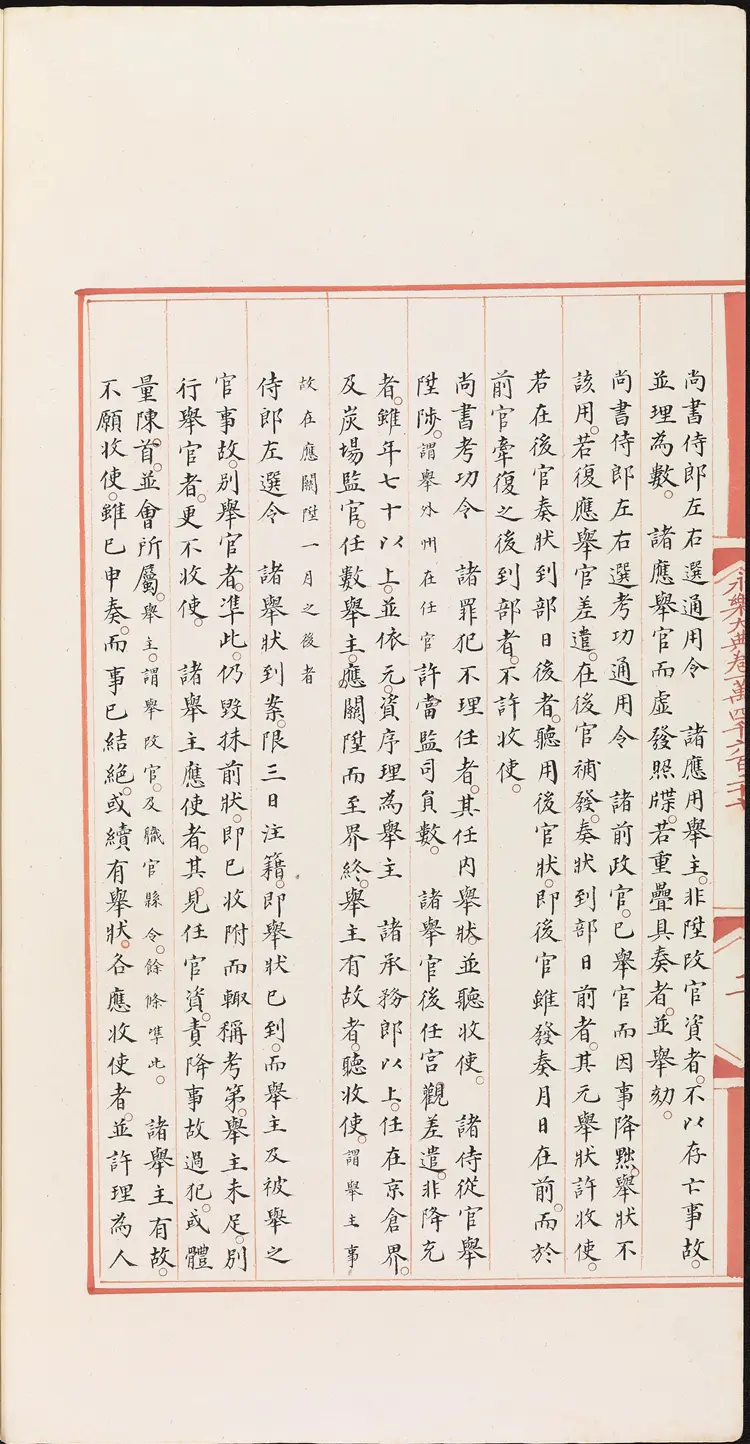 永樂大典卷一萬四千六百二十七
尚書侍郎左右選通用令　諸應用舉主。非陞改官資者。不以存亡事故。
並理為數。　諸應舉官而虛發照牒。若重疊具奏者。並舉劾。
尚書侍郎左右選考功通用令　諸前政官。已舉官而因事降黜。舉狀不
該用。若復應舉官差遣。在後官補發。奏狀到部日前者。其元舉狀許收使。
若在後官奏狀到部日後者。聽用後官狀。即後官雖發奏月日在前。而於
前官牽復之後到部者。不許收使。
尚書考功令　諸罪犯不理任者。其任內舉狀。並聽收使。　諸侍從官舉
陞陟。謂舉外州在任官許當監司員數。　諸舉官後任宮觀差遣。非降充
者。雖年七十以上。並依元。資序理為舉主　諸承務郎以上。任在京倉界。
及炭場監官。任數舉主。應關陞而至界終。舉主有故者。聽收使。謂舉主事
故在應關陞一月之後者
侍郎左選令　諸舉狀到案。限三日注籍。即舉狀已到。而舉主及被舉之
官事故。別舉官者。準此。仍毀抹前狀。即已收附而輒稱考第。舉主未足。別
行舉官者。更不收使。　諸舉主應使者。其見任官資。責降事故過犯。或體
量陳。首。並會所屬。舉主。謂舉改官。及職官縣令。餘條準此。　諸舉主有故。
不願收使。雖已申奏。而事已結絕。或續有舉狀。各應收使者。並許理為人